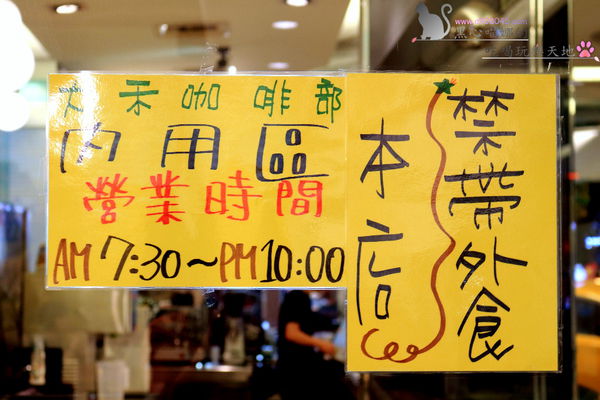 禾咖啡部
內用區
營業時間
AM 7:30～PM10:00
本店
禁帶外食